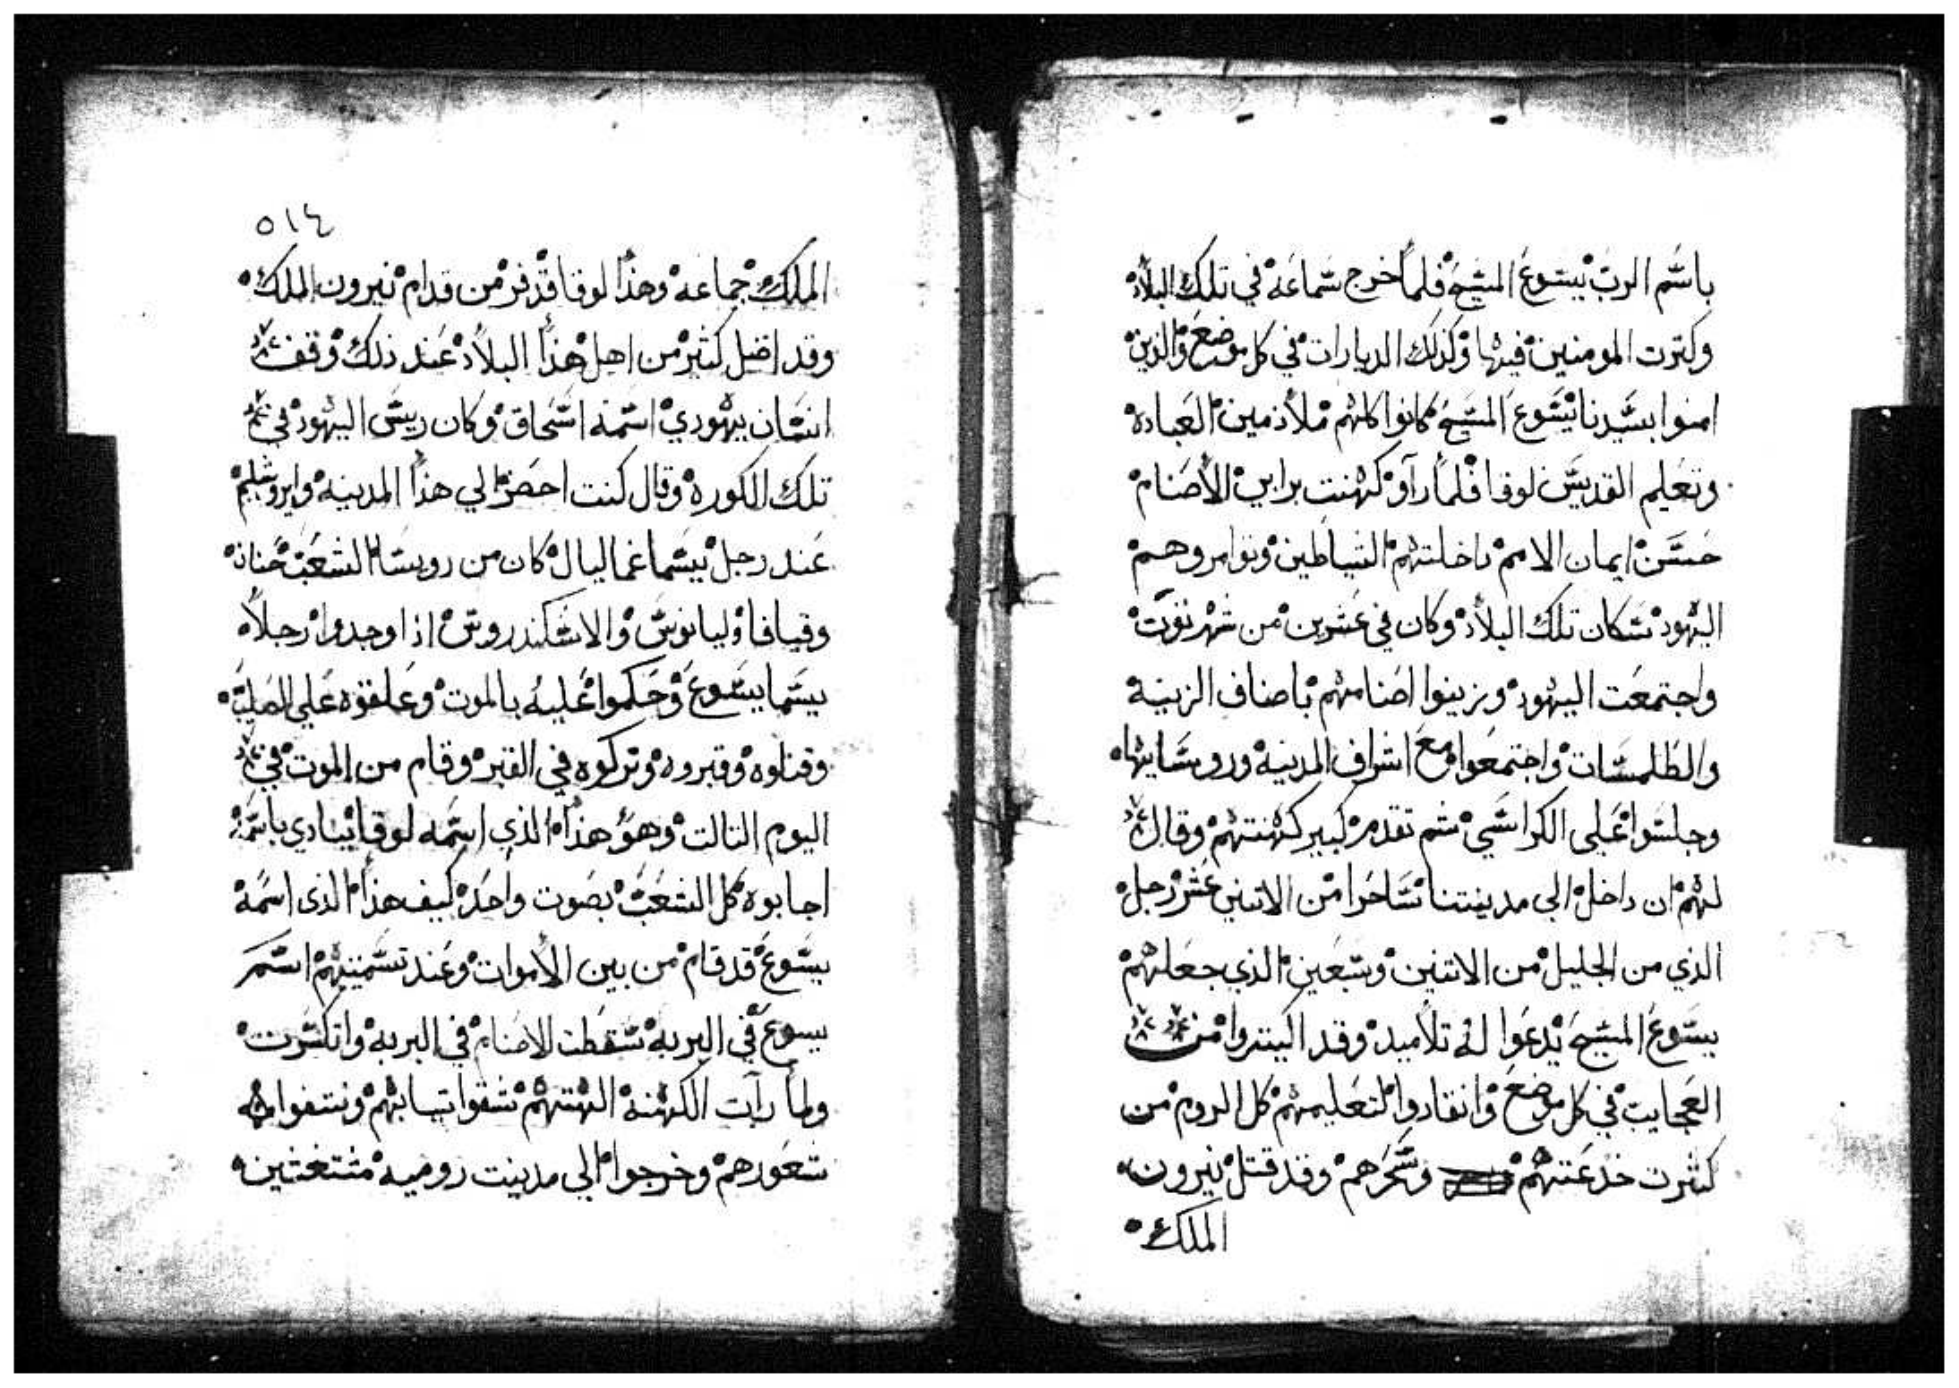 باسم الرب يسوع المسيح فلما خرج سماعه في تلك البلاد
وكترت المومنين فيها وكذلك الديارات في كل موضع والذين
امنوا بسيدنا يسوع المسيح كانوا كلهم ملازمين العباده
وتعليم القديس لوقا فلما رآو كهنت برابي الأصنام
حسن ايمان الامم داخلتهم الشياطين وتوامروهم
اليهود سكان تلك البلاد وكان في عشرين من شهر توت
واجتمعت اليهود وزينوا اصنامهم باصناف الزينة
والطلمسات واجتمعوا مع اشراف المدينه وروسايها
وجلسوا على الكراسي ثم تقدم كبير كهنتهم وقال
لهم ان داخل الي مدينتنا ساحرا من الاتني عشر رجل
الذي من الجليل من الاتنين وسبعين الذي جعلهم
يسوع المسيح يدعوا له تلاميد وقد اكتروا من
العجايب في كل موضع وانقادوا لتعليمهم كل الروم من
كثرت خدعتهم وسحرهم وقد قتل نيرون
الملك
٥١٤
الملك جماعه وهذا لوقا قد فر من قدام نيرون الملك
وقد اضل كثير من اهل هذا البلاد عند ذلك وقف
انسان يهودي اسمه اسحاق وكان ريس اليهود في
تلك الكوره وقال كنت احضر الي هذا المدينه وايروشليم
عند رجل يسما غماليال كان من روسا الشعب حنان
وقيافا وليانوس والاسكندروس اذا وجدوا رجلا
يسما يسوع وحكموا عليه بالموت وعلقوه علي الصليب
وقتلوه وقبروه وتركوه في القبر وقام من الموت في
اليوم التالت وهو هذا الذي اسمه لوقا ينادي باسمه
اجابوه كل الشعب بصوت واحد كيف هذا الذى اسمه
يسوع قد قام من بين الأموات وعند تسميتهم اسم
يسوع في البربه سقطت الاصنام في البربه واتكسرت
ولما رآت الكهنة الهتهم شقوا تيابهم ونتفوا
شعورهم وخرجوا الي مدينت روميه مشتغتين